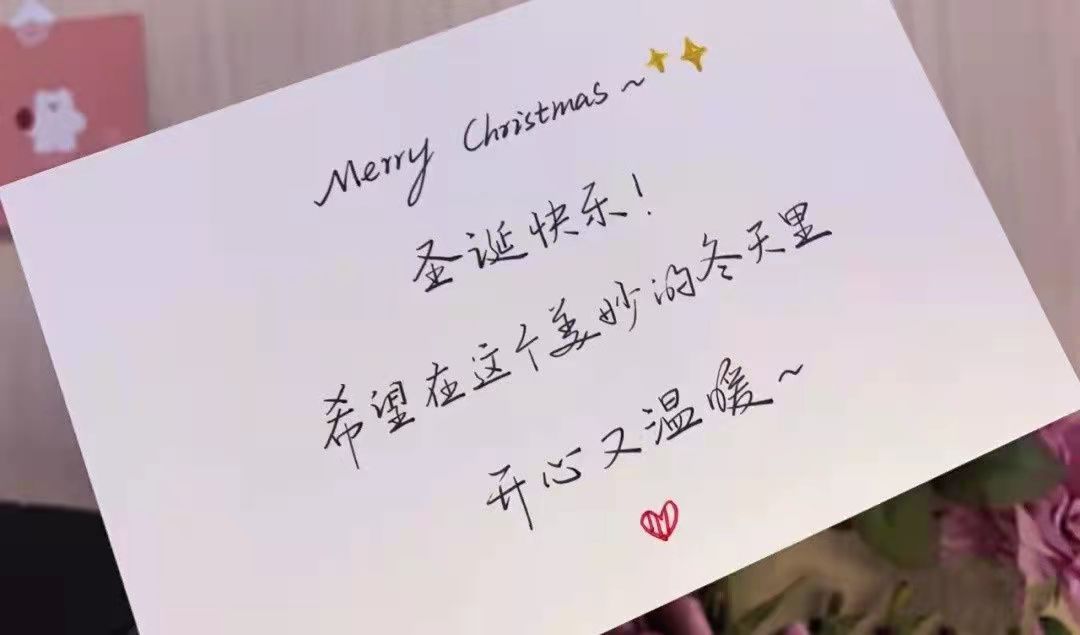 Merry Christmas~
圣诞快乐!
希望在这个美妙的冬天里
开心又温暖~